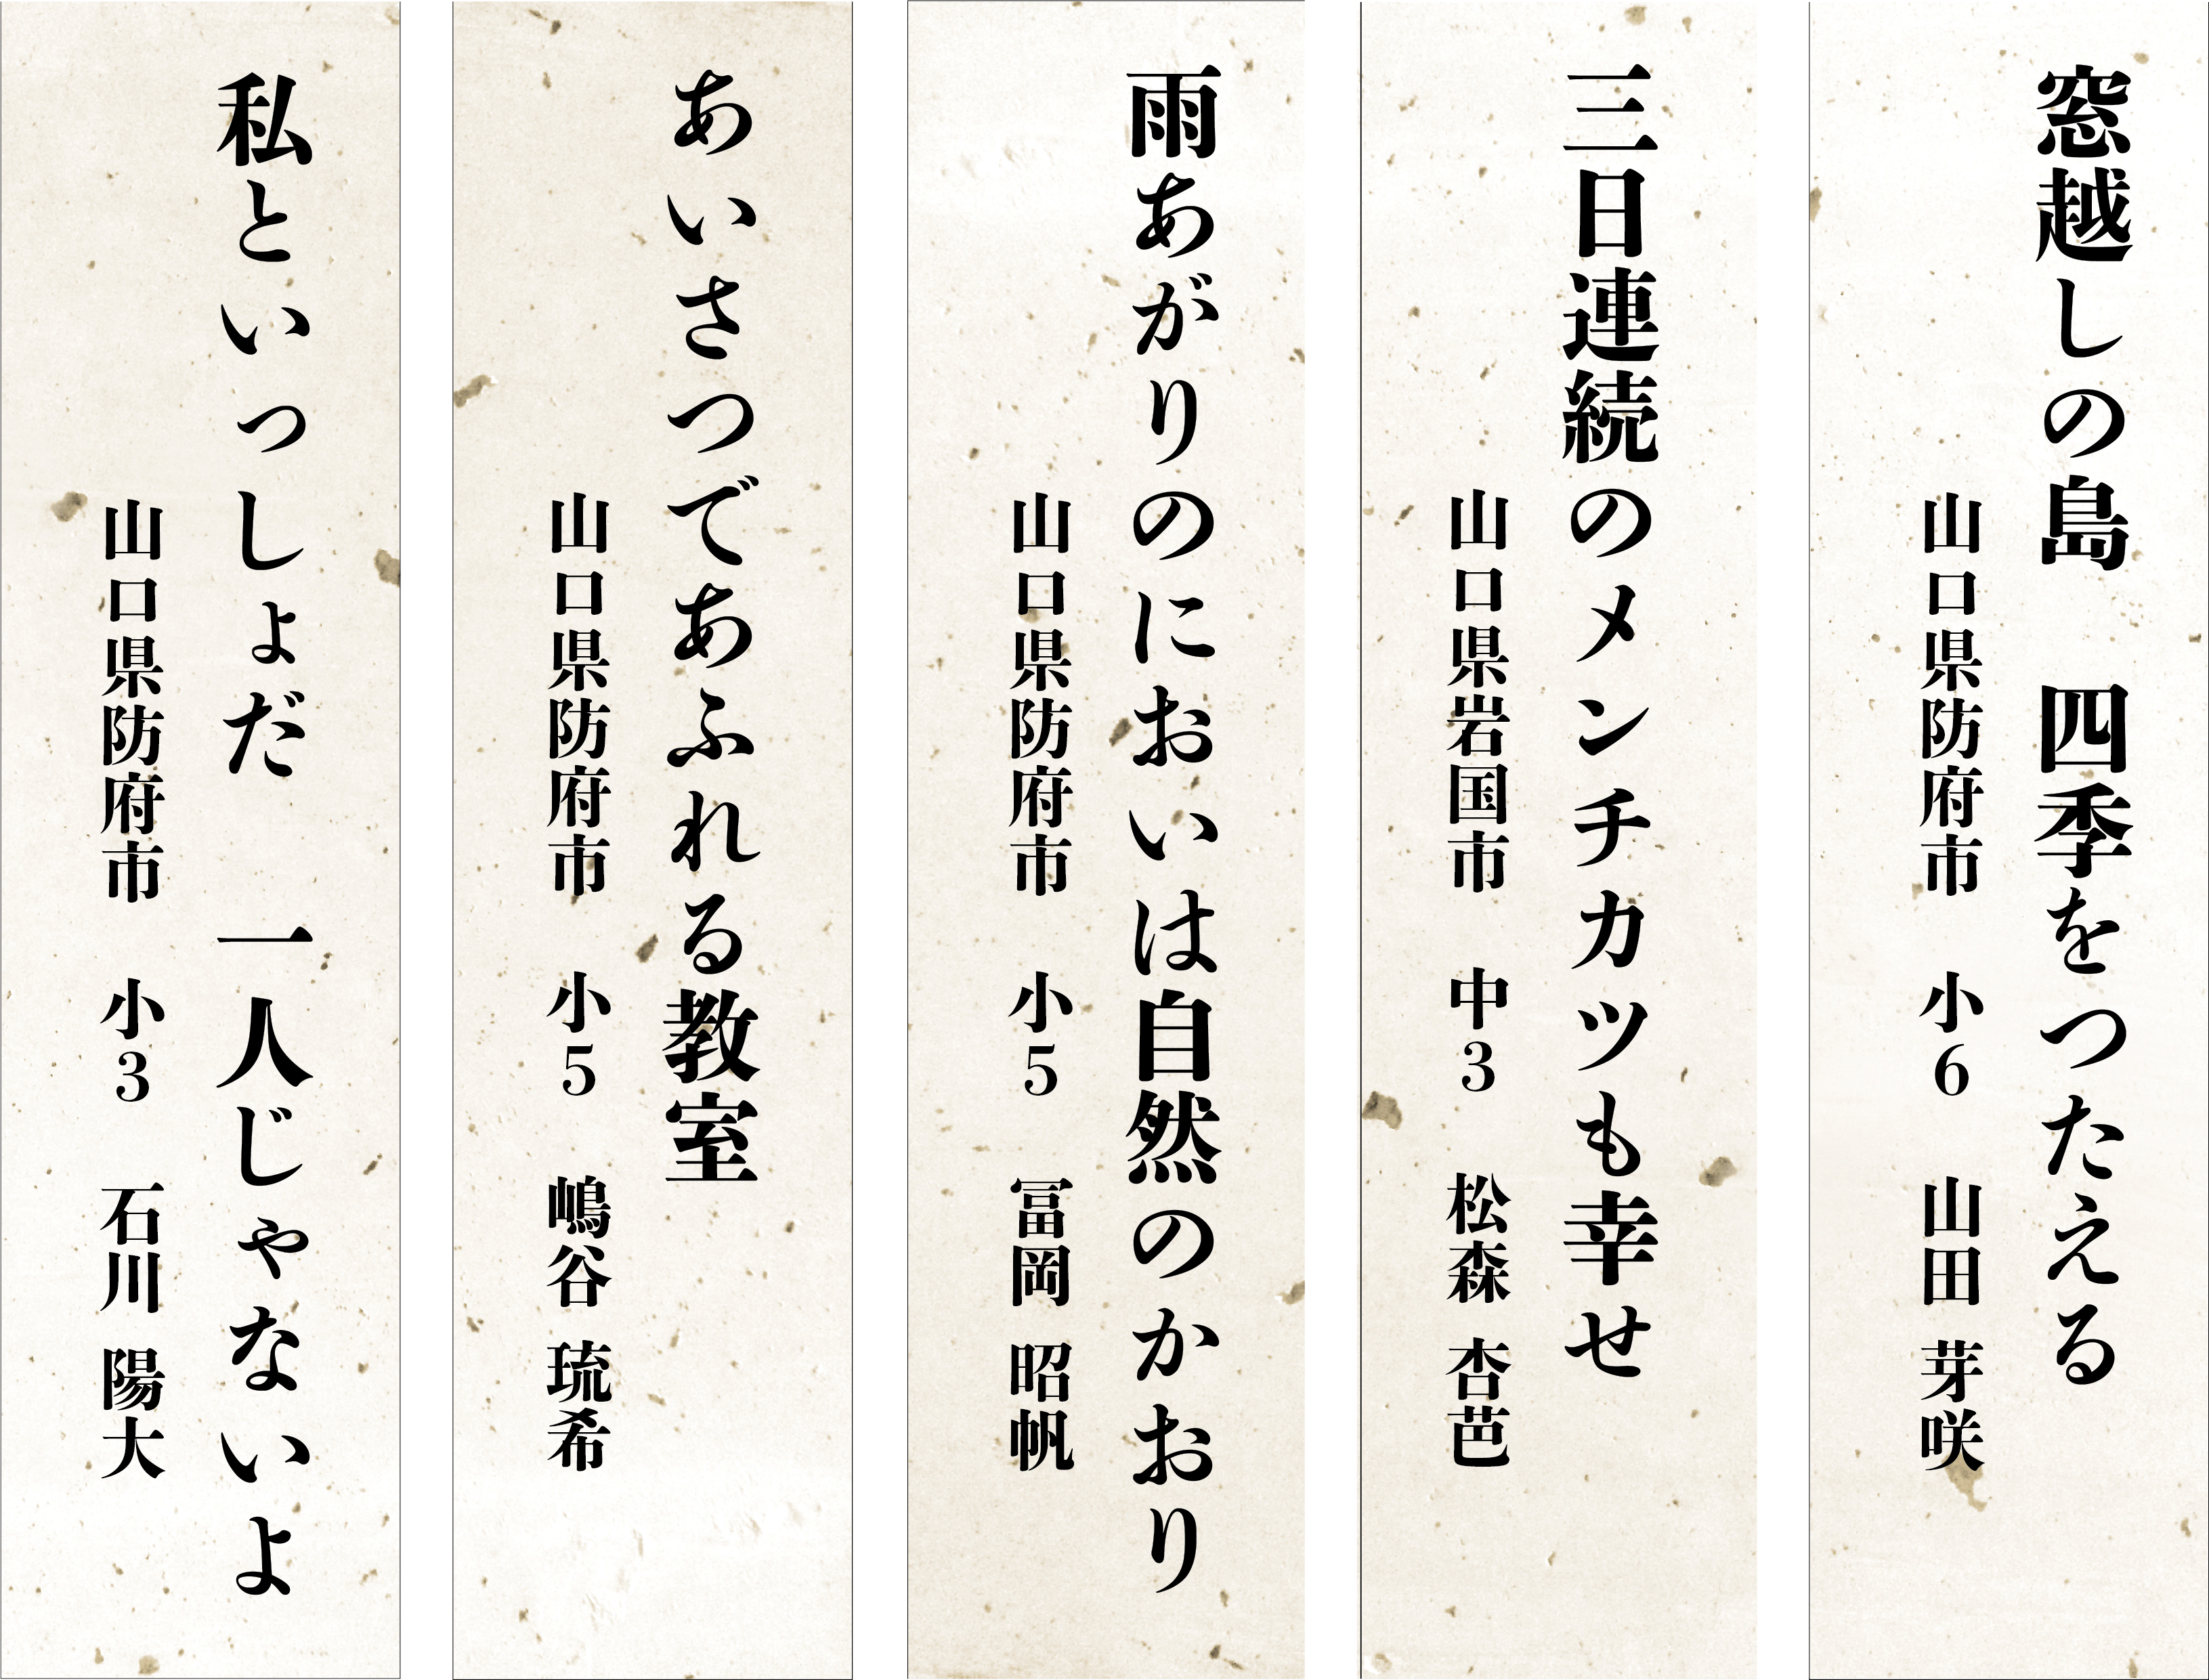 窓越しの島　四季をつたえる
山口県防府市　小6　山田 芽咲
三日連続のメンチカツも幸せ
山口県岩国市　中3　松森 杏芭
雨あがりのにおいは自然のかおり
山口県防府市　小5　冨岡 昭帆
あいさつであふれる教室
山口県防府市　小5　嶋谷 琉希
私といっしょだ　一人じゃないよ
山口県防府市　小3　石川 陽大